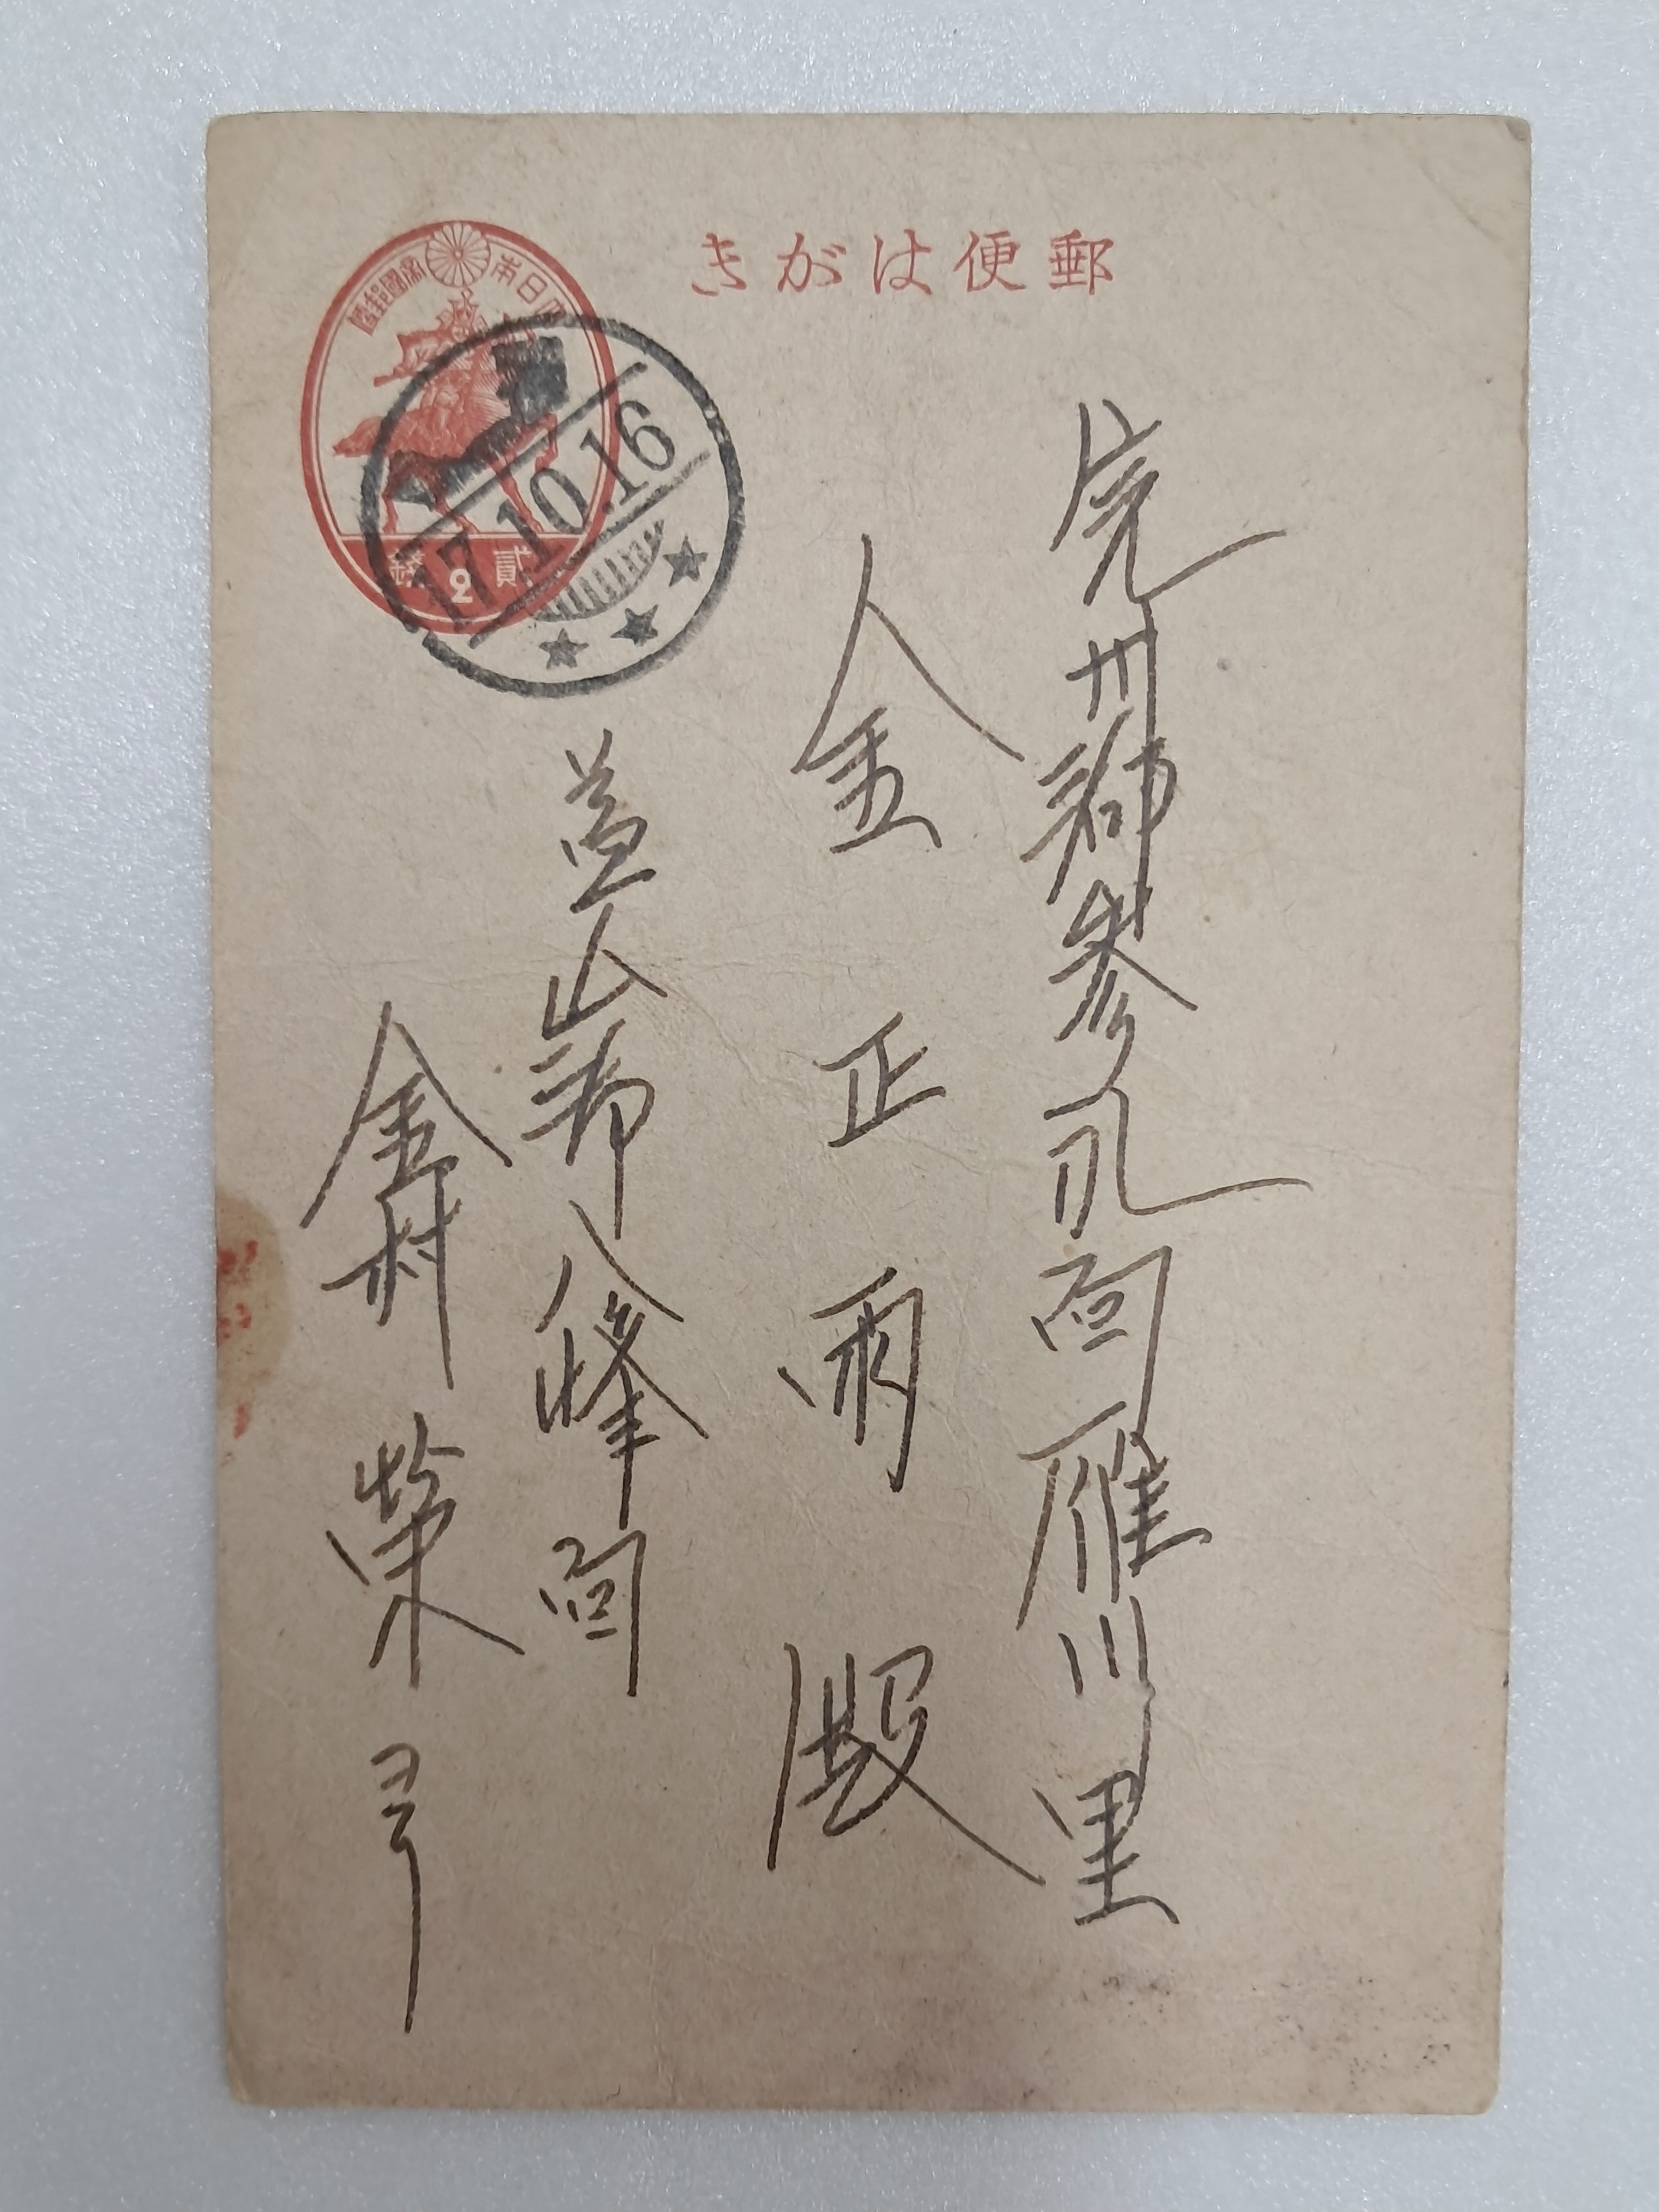 郵便はがき
大日本帝國郵便
貳 2 錢
17.10.16
完州郡參礼面雁川里
金正雨殿
益山郡八峰面
金村榮